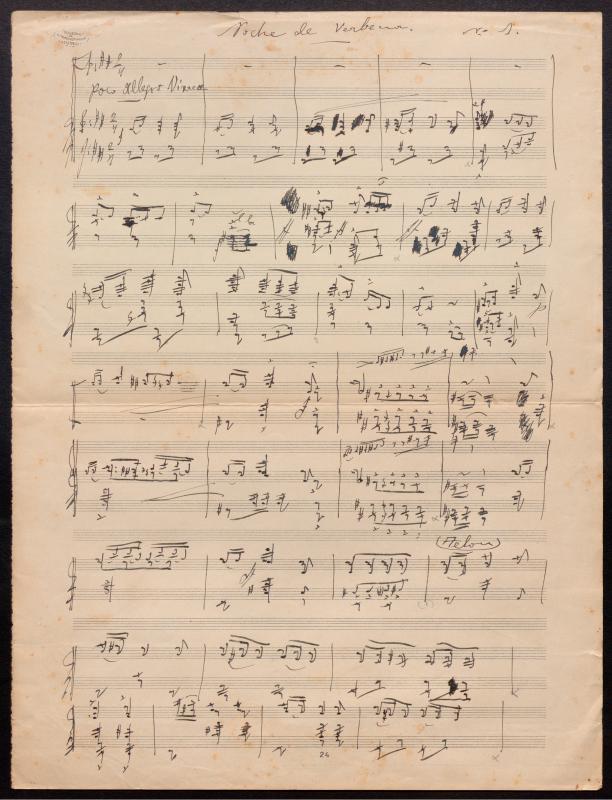 Noche de Verbena. No 1.
poco Allegro Vivace
(Telon)
24